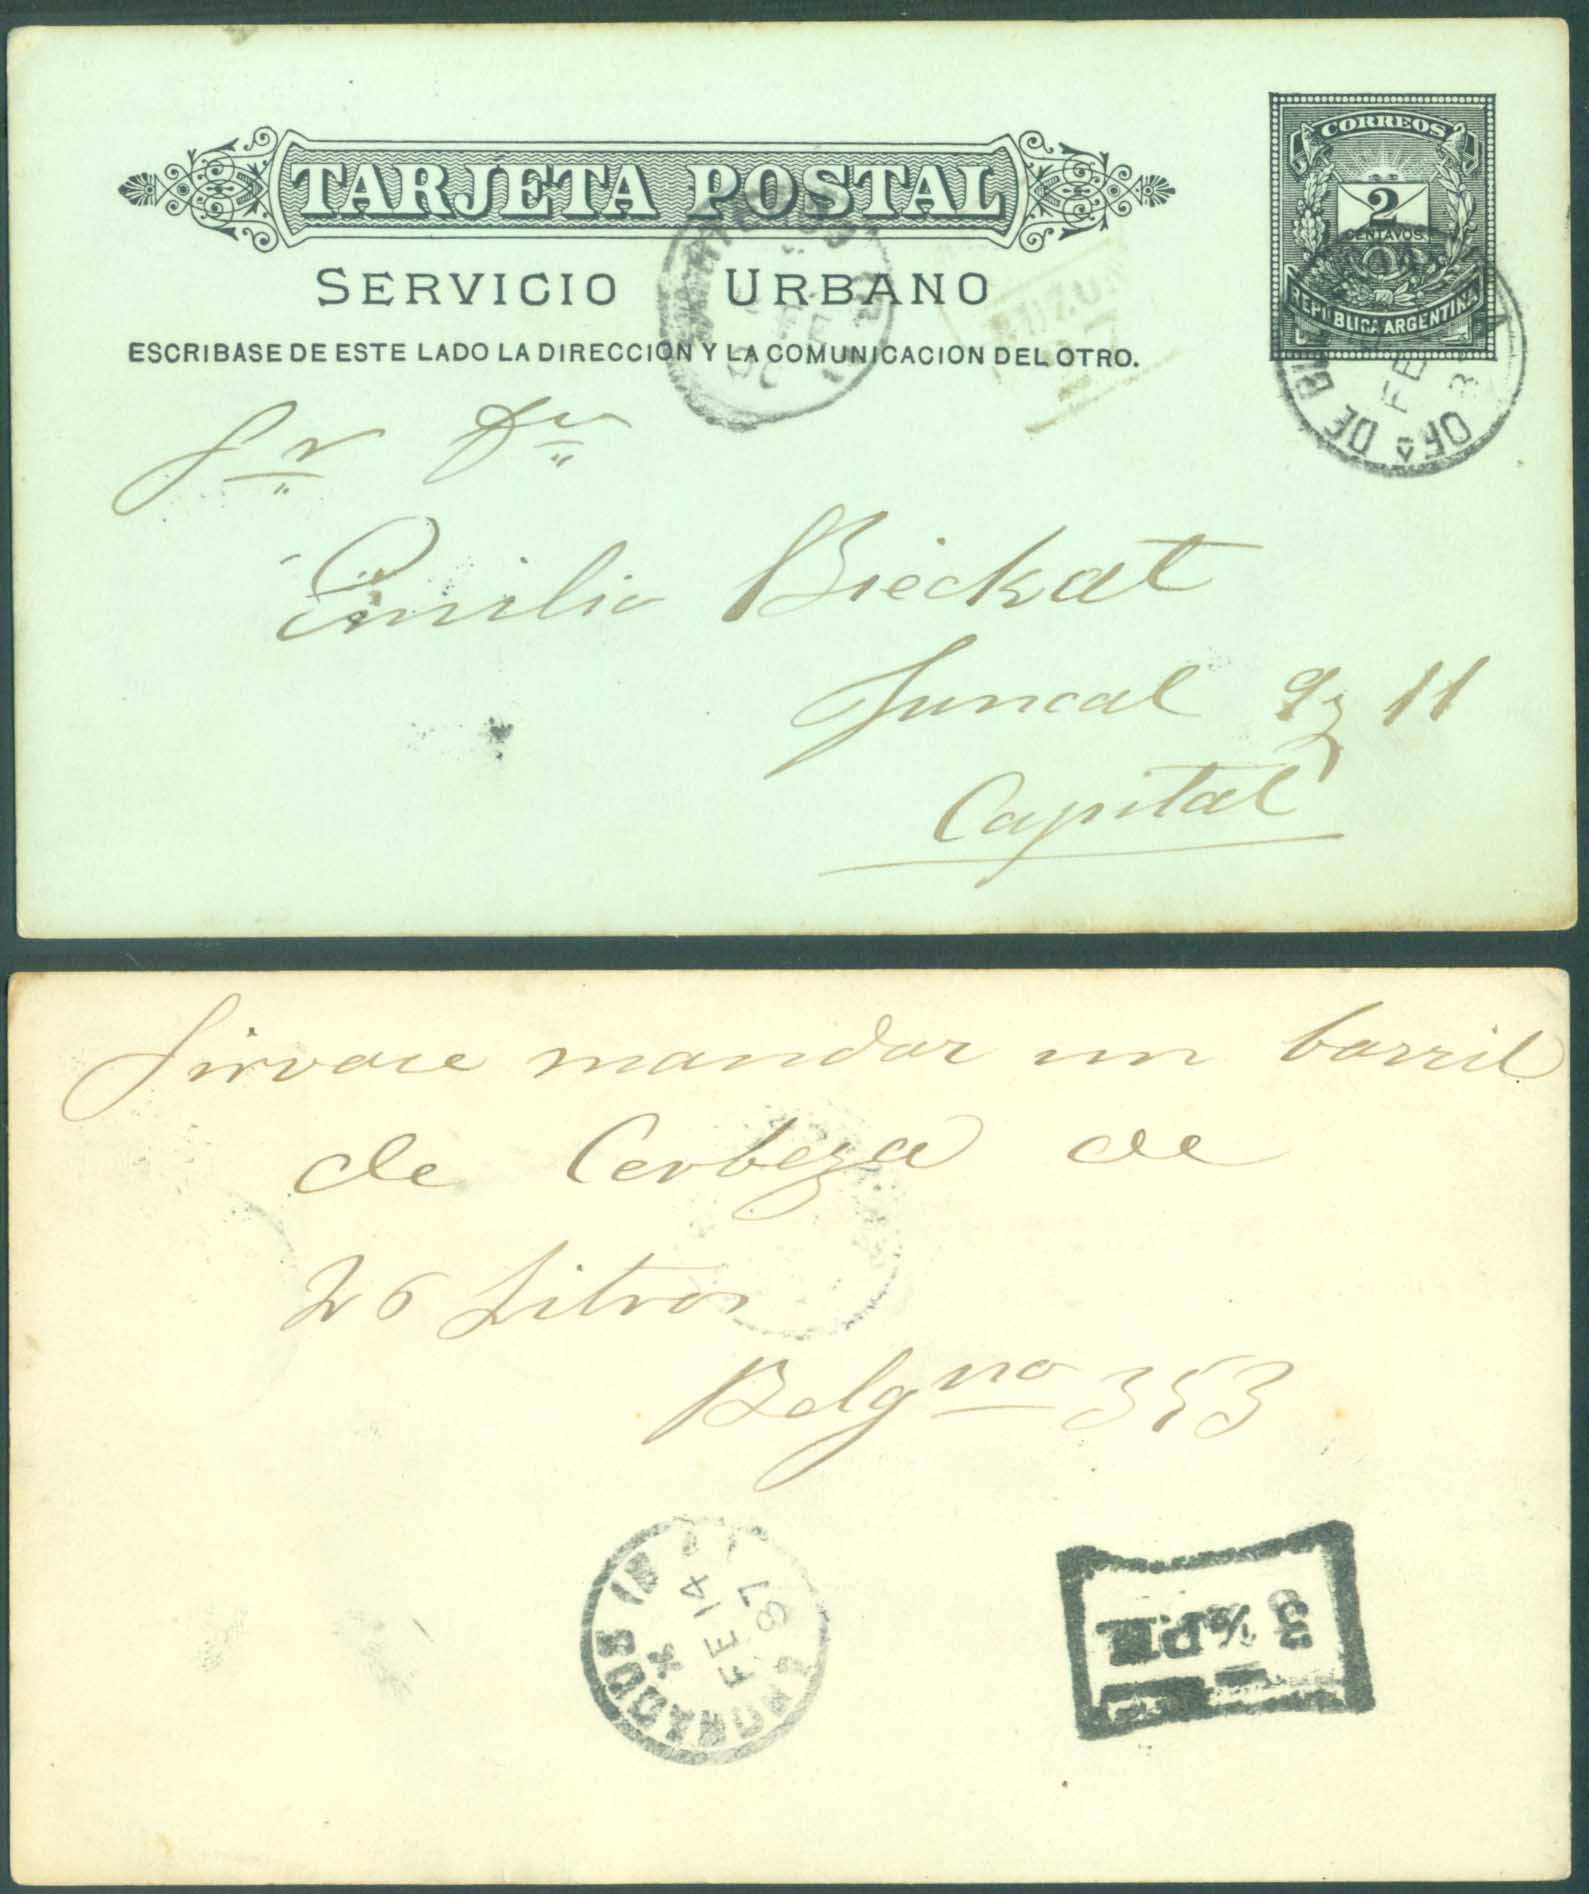 TARJETA POSTAL
SERVICIO URBANO
ESCRIBASE DE ESTE LADO LA DIRECCION Y LA COMUNICACION DEL OTRO.
CORREOS
2
CENTAVOS
REPUBLICA ARGENTINA
BUZON
OFA DE
FE
Sr Dn
Emilio Bieckat
Juncal 93 11
Capital
Sirvase mandar un barril
de Cerbeza de
26 Litros
Belgno 353
FE 14
87
3 ½ PM